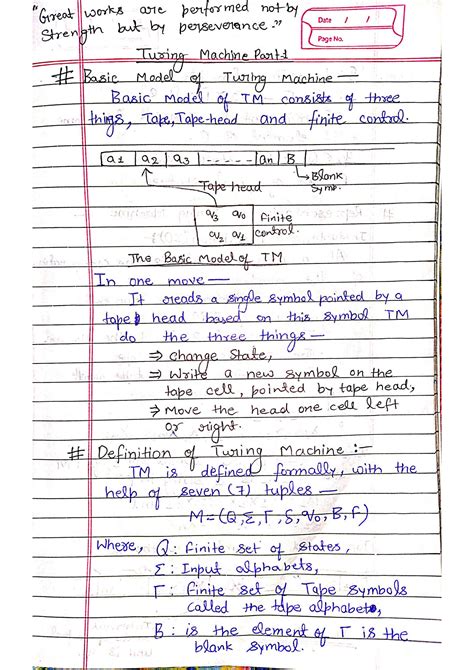 "Great works are performed not by
Strength but by perseverance."
Date / /
Page No.
Turing Machine Part-1
# Basic Model of Turing Machine —
Basic Model of TM consists of three
things, Tape, Tape-head and finite control.
a1 a2 a3 ----- an B
→ Blank
Symb.
Tape head
q3 q0 Finite
q2 q1 control.
The Basic Model of TM
In one move —
It reads a single symbol pointed by a
tape head based on this symbol TM
do the three things —
⇒ change State,
⇒ Write a new symbol on the
tape cell, pointed by tape head,
⇒ Move the head one cell left
or right.
# Definition of Turing Machine :-
TM is defined formally, with the
help of seven (7) tuples —
M=(Q,Σ,Γ,δ,q0,B,F)
Where, Q : Finite set of states,
Σ : Input alphabets,
Γ : Finite set of Tape symbols
called the tape alphabets,
B : is the element of Γ is the
blank symbol.